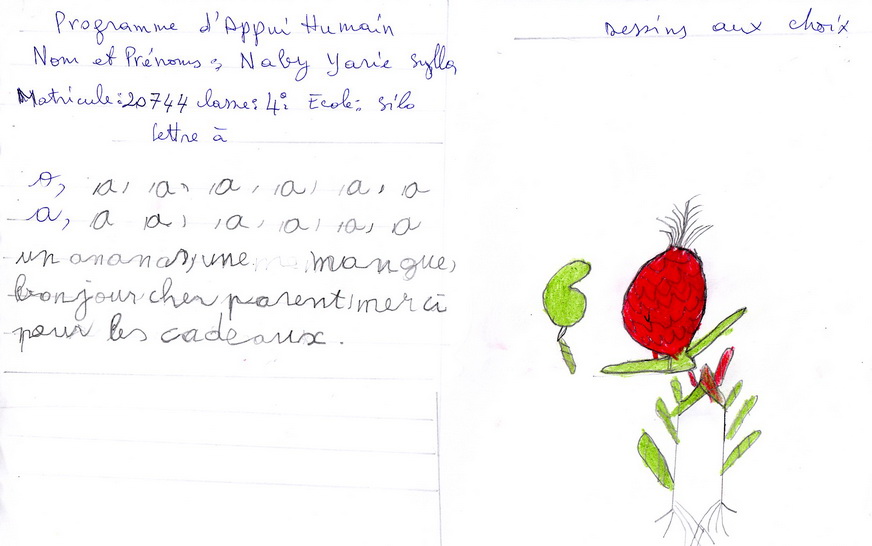 Programme d'Appui Humain
Nom et Prénoms : Naby Yarie Sylla
Matricule : 20744 classe : 4è Ecole : silo
lettre à
a, a, a, a, a, a, a
a, a a, a, a, a, a
un ananas, une mangue,
bonjour cher parent, merci
pour les cadeaux.
Dessins aux choix